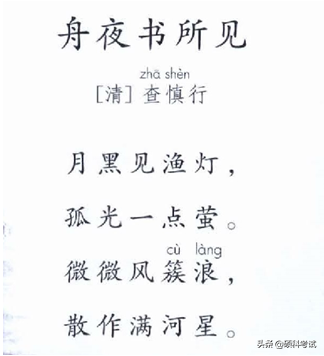 舟夜书所见
zhā shèn
[清] 查慎行
月黑见渔灯，
孤光一点萤。
cù làng
微微风簇浪，
散作满河星。
头条 @硕科考试